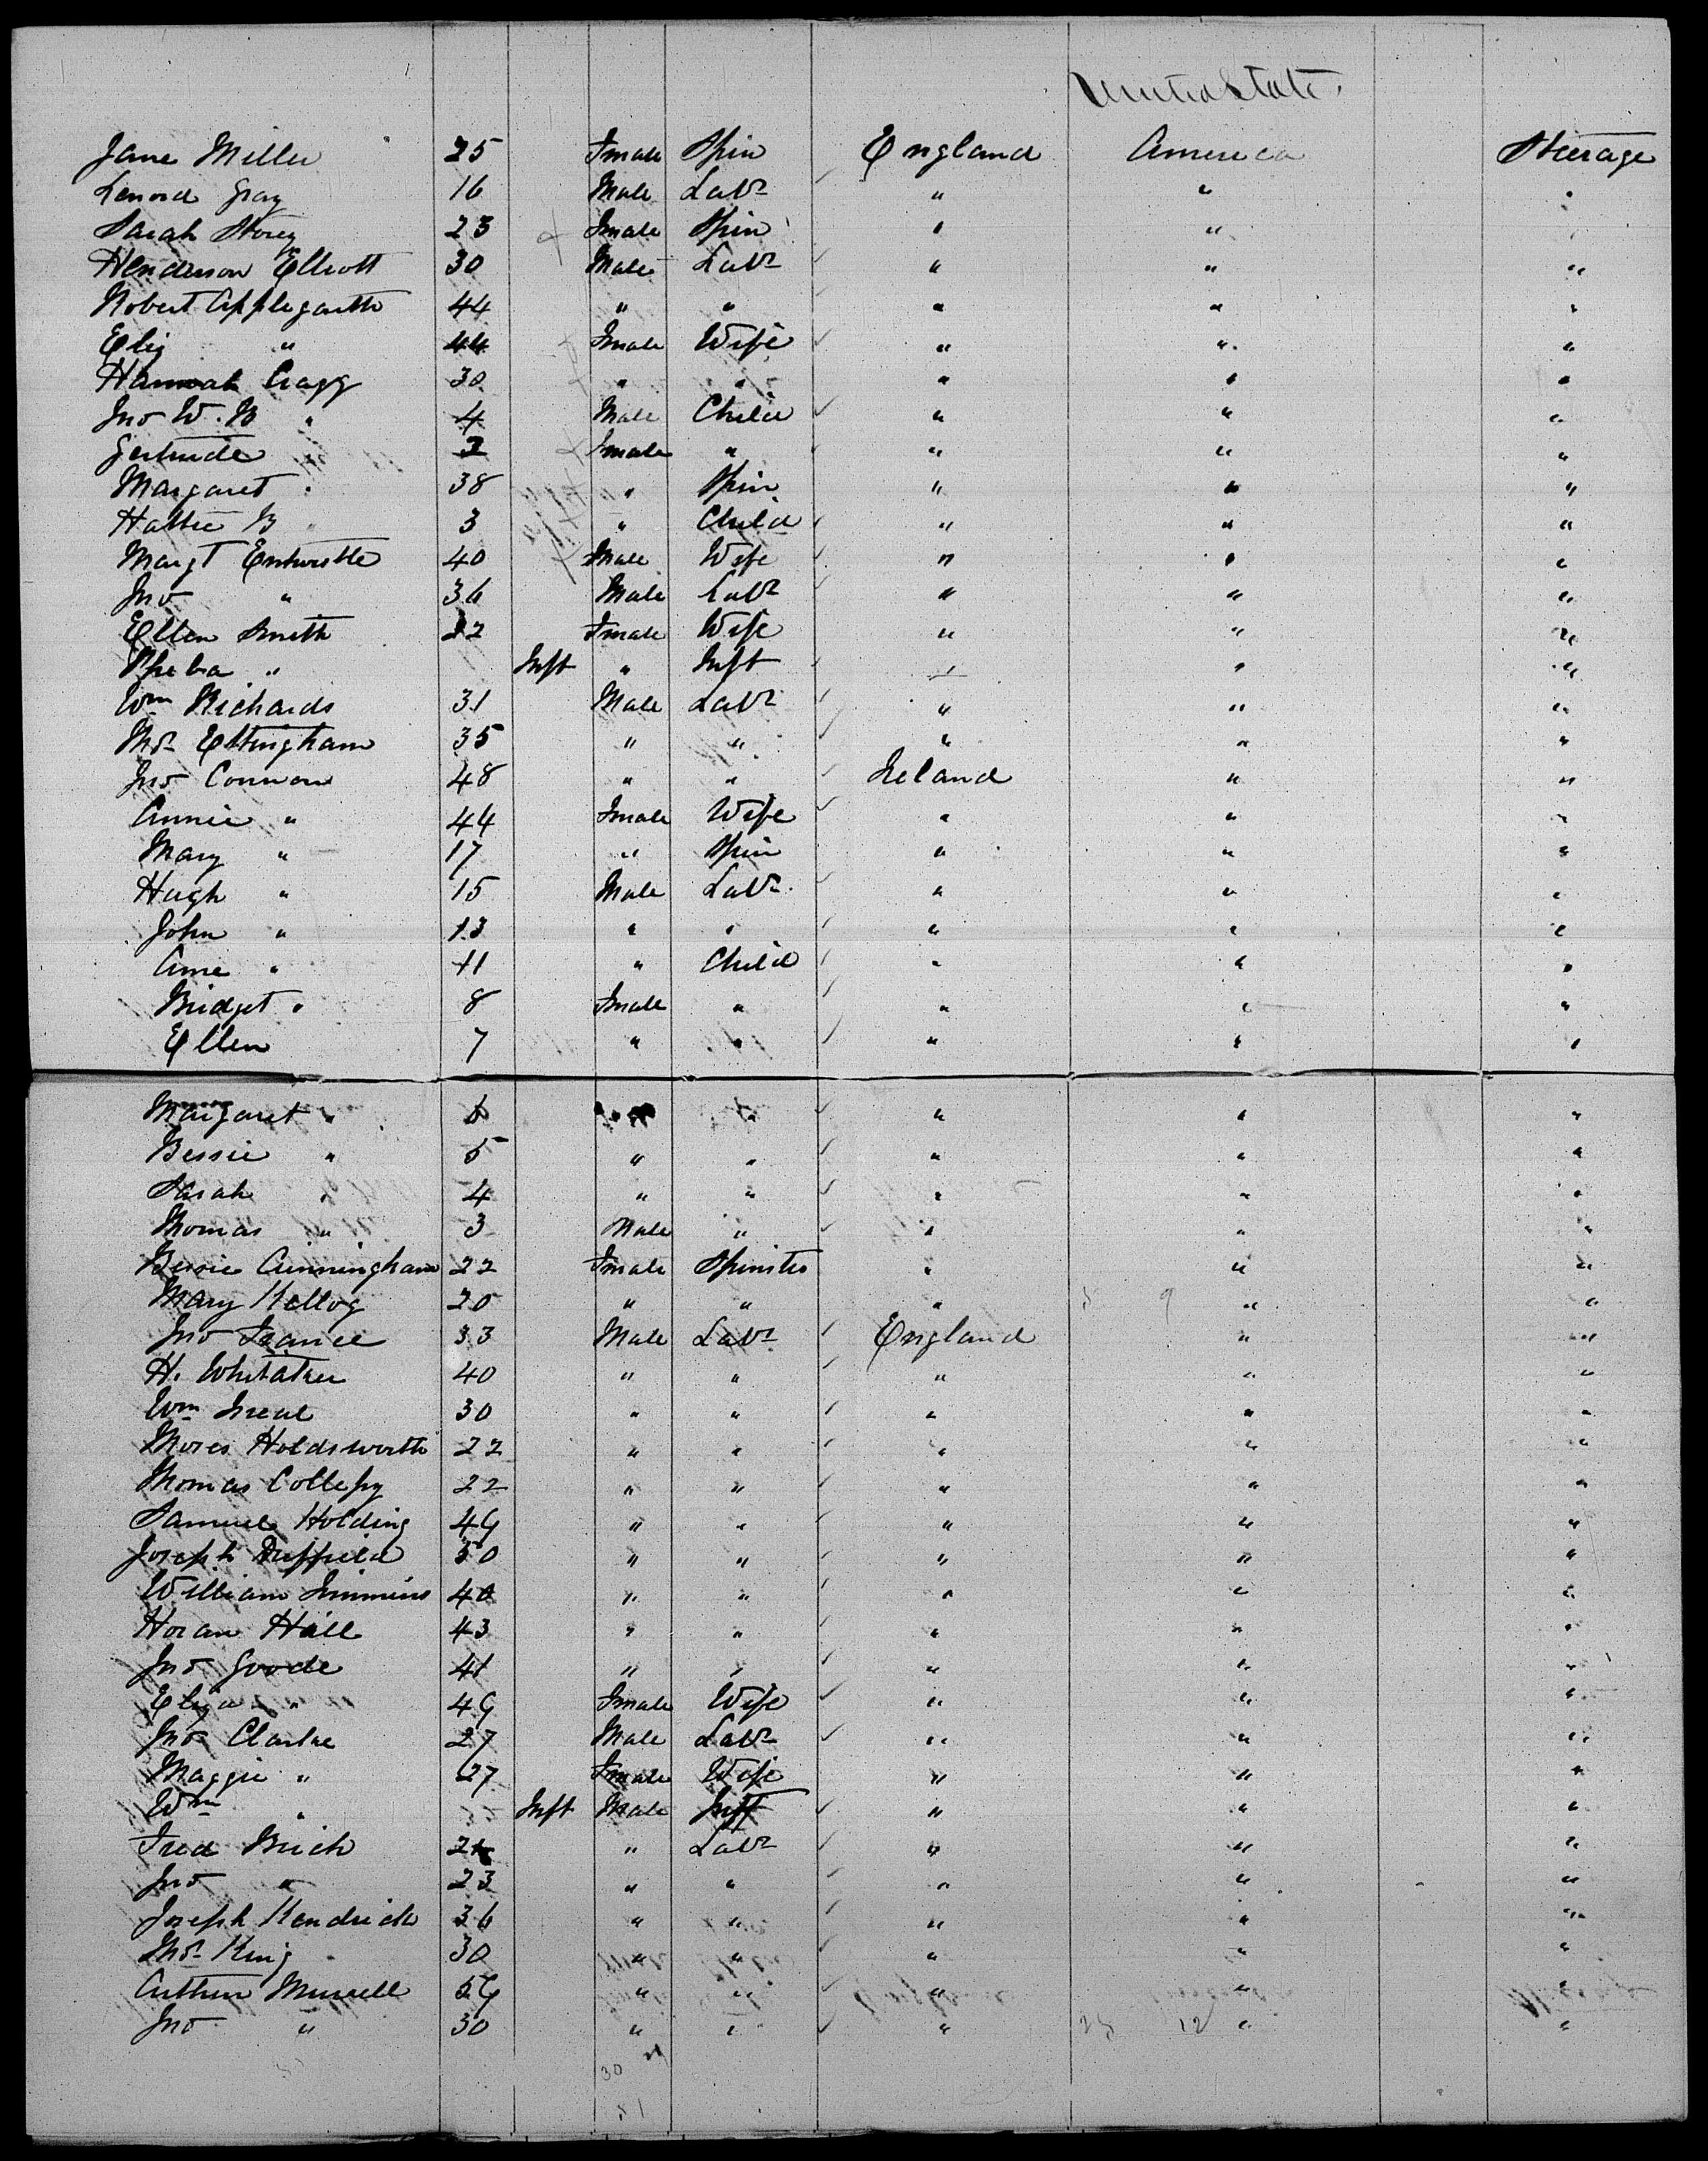 United States
Jane Miller 25 Fmale Spin England America Steerage
Lenord Gray 16 Male Labr " " "
Sarah Storey 23 Fmale Spin " " "
Henderson Elliott 30 Male Labr " " "
Robert Applegarth 44 " " " " "
Eliz " 44 Fmale Wife " " "
Hannah Cragg 30 " " " " "
Jno W. B " 4 Male Child " " "
Gertrude " 2 Fmale " " " "
Margaret " 38 " Spin " " "
Hattie B " 3 " Child " " "
Margt Entwistle 40 Male Wife " " "
Jno " 36 Male Labr " " "
Ellen Smith 22 Fmale Wife " " "
Pheba " Inft " Inft " " "
Wm Richards 31 Male Labr " " "
Thos Eltingham 35 " " " " "
Jno Connon 48 " " Ireland " "
Annie " 44 Fmale Wife " " "
Mary " 17 " Spin " " "
Hugh " 15 Male Labr " " "
John " 13 " " " " "
Ame " 11 " Child " " "
Bridget " 8 Fmale " " " "
Ellen 7 " " " " "
Margaret " 6 " " " " "
Bessie " 5 " " " " "
Sarah " 4 " " " " "
Thomas " 3 Male " " " "
Bessie Cunningham 22 Fmale Spinster " " "
Mary Kellog 20 " " " " "
Jno France 33 Male Labr England " "
H. Whitaker 40 " " " " "
Wm 30 " " " " "
Moses Holdsworth 22 " " " " "
Thomas 22 " " " " "
Samuel Holding 49 " " " " "
Joseph Duffield 50 " " " " "
William Simmins 40 " " " " "
Horam Hall 43 " " " " "
Jno Goode 41 " " " " "
Eliza " 49 Fmale Wife " " "
Jno Clarke 27 Male Labr " " "
Maggie " 27 Fmale Wife " " "
Wm " Inft Male Inft " " "
Fred Birch " Labr " " "
Jno " 23 " " " " "
Joseph Kendrick 36 " " " " "
Thos King 30 " " " " "
Arthur Murrell 29 " " " " "
Jno " 30 " " " 12 " "
30
51